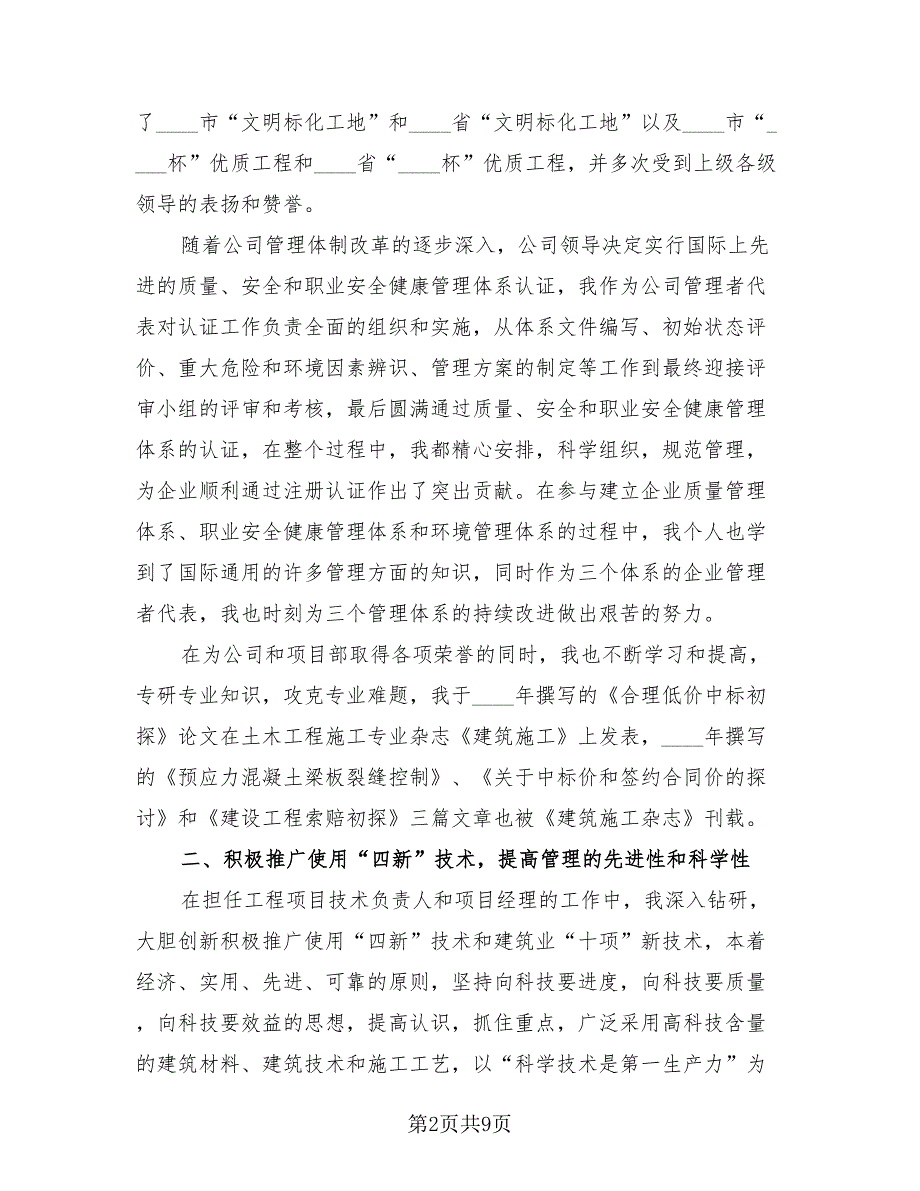 了____市“文明标化工地”和____省“文明标化工地”以及____市“_
___杯”优质工程和____省“____杯”优质工程，并多次受到上级各级
领导的表扬和赞誉。
随着公司管理体制改革的逐步深入，公司领导决定实行国际上先
进的质量、安全和职业安全健康管理体系认证，我作为公司管理者代
表对认证工作负责全面的组织和实施，从体系文件编写、初始状态评
价、重大危险和环境因素辨识、管理方案的制定等工作到最终迎接评
审小组的评审和考核，最后圆满通过质量、安全和职业安全健康管理
体系的认证，在整个过程中，我都精心安排，科学组织，规范管理，
为企业顺利通过注册认证作出了突出贡献。在参与建立企业质量管理
体系、职业安全健康管理体系和环境管理体系的过程中，我个人也学
到了国际通用的许多管理方面的知识，同时作为三个体系的企业管理
者代表，我也时刻为三个管理体系的持续改进做出艰苦的努力。
在为公司和项目部取得各项荣誉的同时，我也不断学习和提高，
专研专业知识，攻克专业难题，我于____年撰写的《合理低价中标初
探》论文在土木工程施工专业杂志《建筑施工》上发表，____年撰写
的《预应力混凝土梁板裂缝控制》、《关于中标价和签约合同价的探
讨》和《建设工程索赔初探》三篇文章也被《建筑施工杂志》刊载。
二、积极推广使用“四新”技术，提高管理的先进性和科学性
在担任工程项目技术负责人和项目经理的工作中，我深入钻研，
大胆创新积极推广使用“四新”技术和建筑业“十项”新技术，本着
经济、实用、先进、可靠的原则，坚持向科技要进度，向科技要质量
，向科技要效益的思想，提高认识，抓住重点，广泛采用高科技含量
的建筑材料、建筑技术和施工工艺，以“科学技术是第一生产力”为
第2页共9页